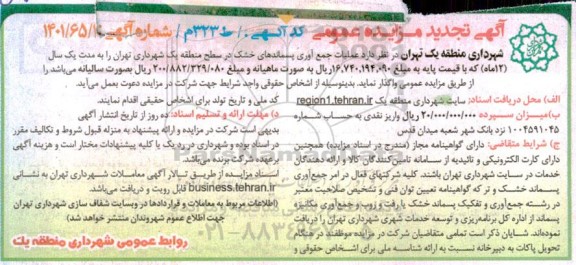 آگهی تجدید مزایده عمومی کد آگهی: / ط ۳۲۳م / شماره آگهی: ۱۴۰۱/۶۵/۱
شهرداری منطقه یک تهران در نظر دارد عملیات جمع آوری پسماندهای خشک در سطح منطقه یک شهرداری تهران را به مدت یک سال
(۱۲ماه) که با قیمت پایه به مبلغ ۱۶,۷۴۰,۱۹۴,۰۹۰ریال به صورت ماهیانه و مبلغ ۲۰۰/۸۸۲/۳۲۹/۰۸۰ ریال بصورت سالیانه می‌باشد را
از طریق مزایده عمومی واگذار نماید. بدینوسیله از اشخاص حقوقی واجد شرایط جهت شرکت در مزایده دعوت بعمل می‌آید.
الف) محل دریافت اسناد: سایت شهرداری منطقه یک region1.tehran.ir
ب)میزان سپرده ۲۰/۰۰۰/۰۰۰/۰۰۰ ریال واریز نقدی به حساب شماره
۱۰۰۴۵۹۱۰۴۵ نزد بانک شهر شعبه میدان قدس
ج) شرایط متقاضی: دارای گواهینامه مجاز (مندرج در اسناد مزایده) همچنین
دارای کارت الکترونیکی و تائیدیه از سامانه تامین‌کنندگان کالا و ارائه دهندگان
خدمات در سایت شهرداری تهران باشند. کلیه شرکتهای فعال در امر جمع‌آوری
پسماند خشک و تر که گواهینامه تعیین توان فنی و تشخیص صلاحیت معتبر
در رشته جمع‌آوری و تفکیک پسماند خشک یا رفت و روب و جمع‌آوری مکانیزه
پسماند از اداره کل برنامه‌ریزی و توسعه خدمات شهری شهرداری تهران را دریافت
نموده‌اند. شایان ذکر است تمامی متقاضیان شرکت در مزایده موظفند در هنگام
تحویل پاکات به دبیرخانه نسبت به ارائه شناسه ملی برای اشخاص حقوقی و
کد ملی و تاریخ تولد برای اشخاص حقیقی اقدام نمایند.
د) مهلت ارائه و تسلیم اسناد: ده روز از تاریخ انتشار آگهی
بدیهی است شرکت در مزایده و ارائه پیشنهاد به منزله قبول شروط و تکالیف مقرر
در اسناد بوده و شهرداری در رد یک یا کلیه پیشنهادات مختار است و هزینه آگهی
برعهده شرکت برنده می‌باشد.
اسناد مزایده از طریق تالار آگهی معاملات شهرداری تهران به نشانی
business.tehran.ir قابل رویت و دریافت می‌باشد.
(اطلاعات مربوط به معاملات و قراردادها در وبسایت شفاف سازی شهرداری تهران
جهت اطلاع عموم شهروندان منتشر خواهد شد)
روابط عمومی شهرداری منطقه یک